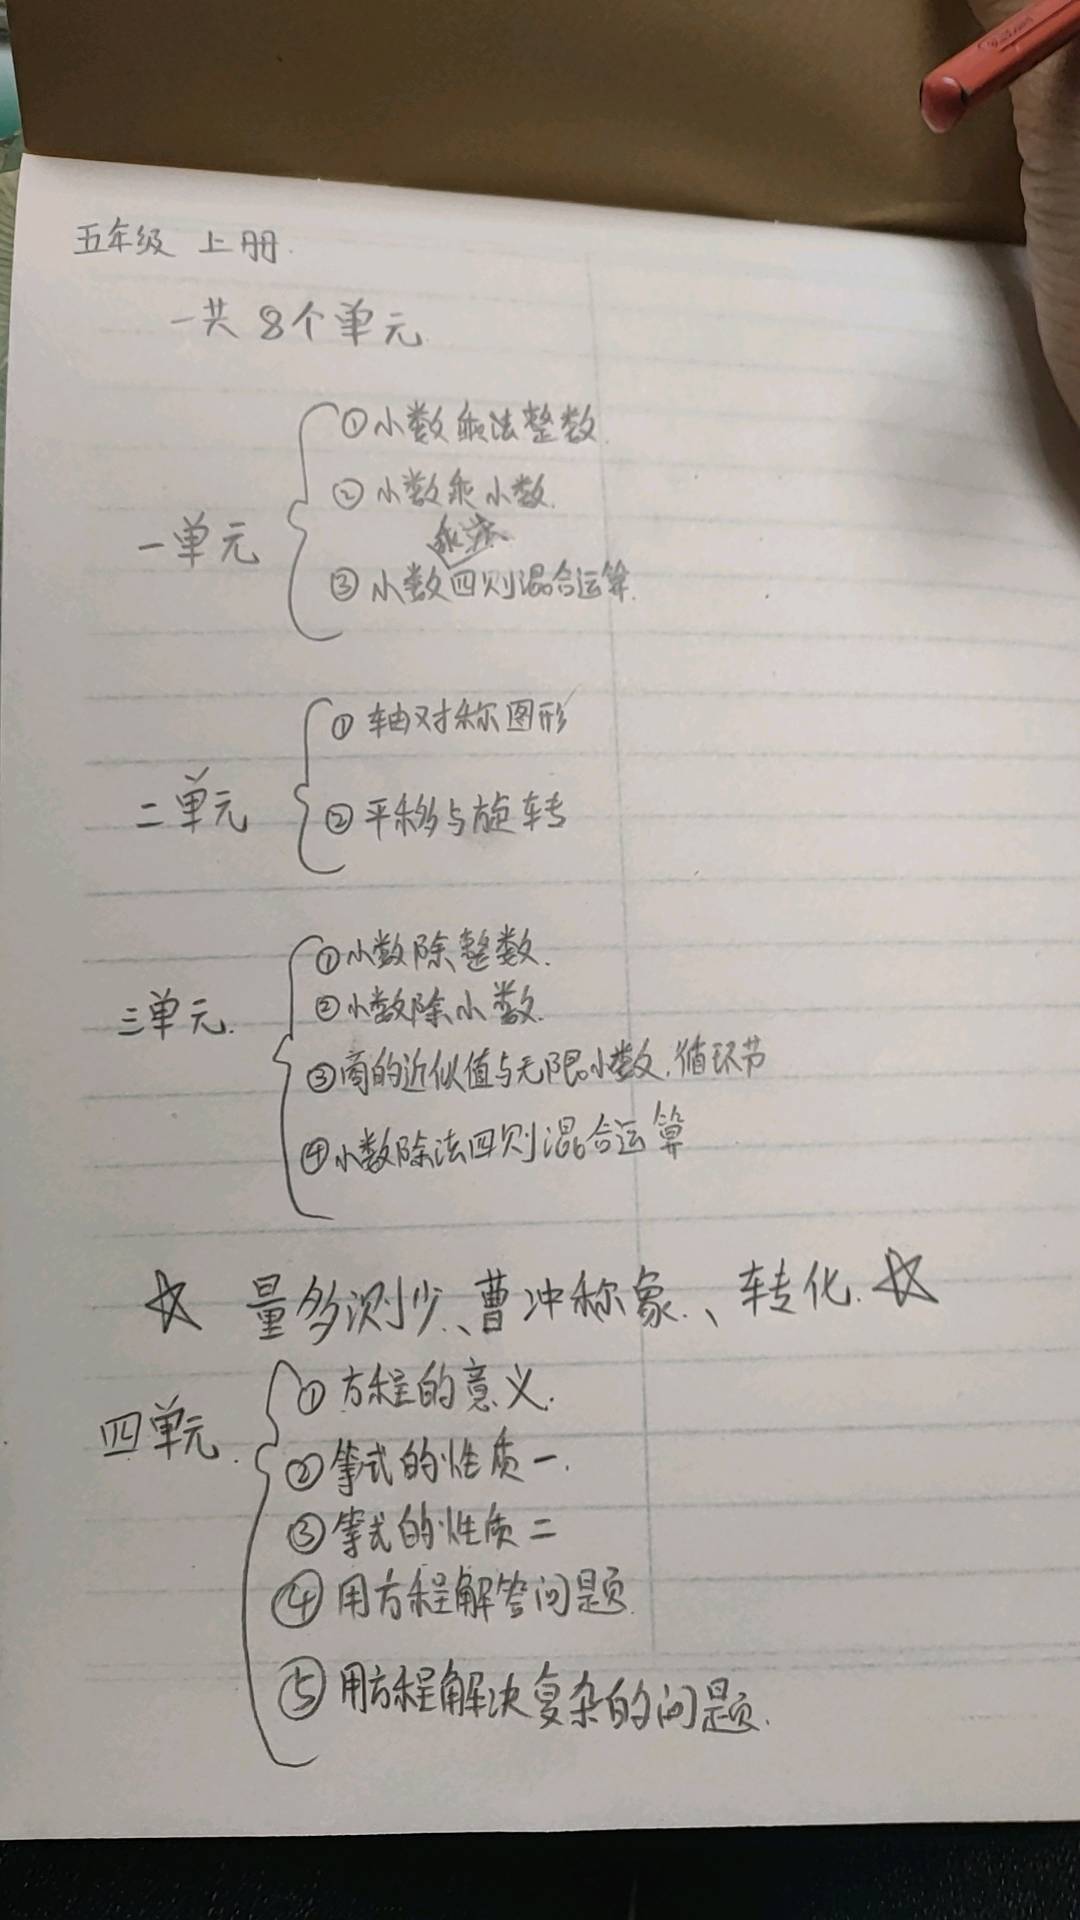 五年级 上册.
一共 8个单元
一单元
①小数乘法整数.
②小数乘小数.
乘法
③小数四则混合运算.
二单元
①轴对称图形
②平移与旋转
三单元.
①小数除整数.
②小数除小数.
③商的近似值与无限小数,循环节
④小数除法四则混合运算
☆ 量多测少、曹冲称象、转化.☆
四单元.
①方程的意义.
②等式的性质一.
③等式的性质二
④用方程解答问题.
⑤用方程解决复杂的问题.